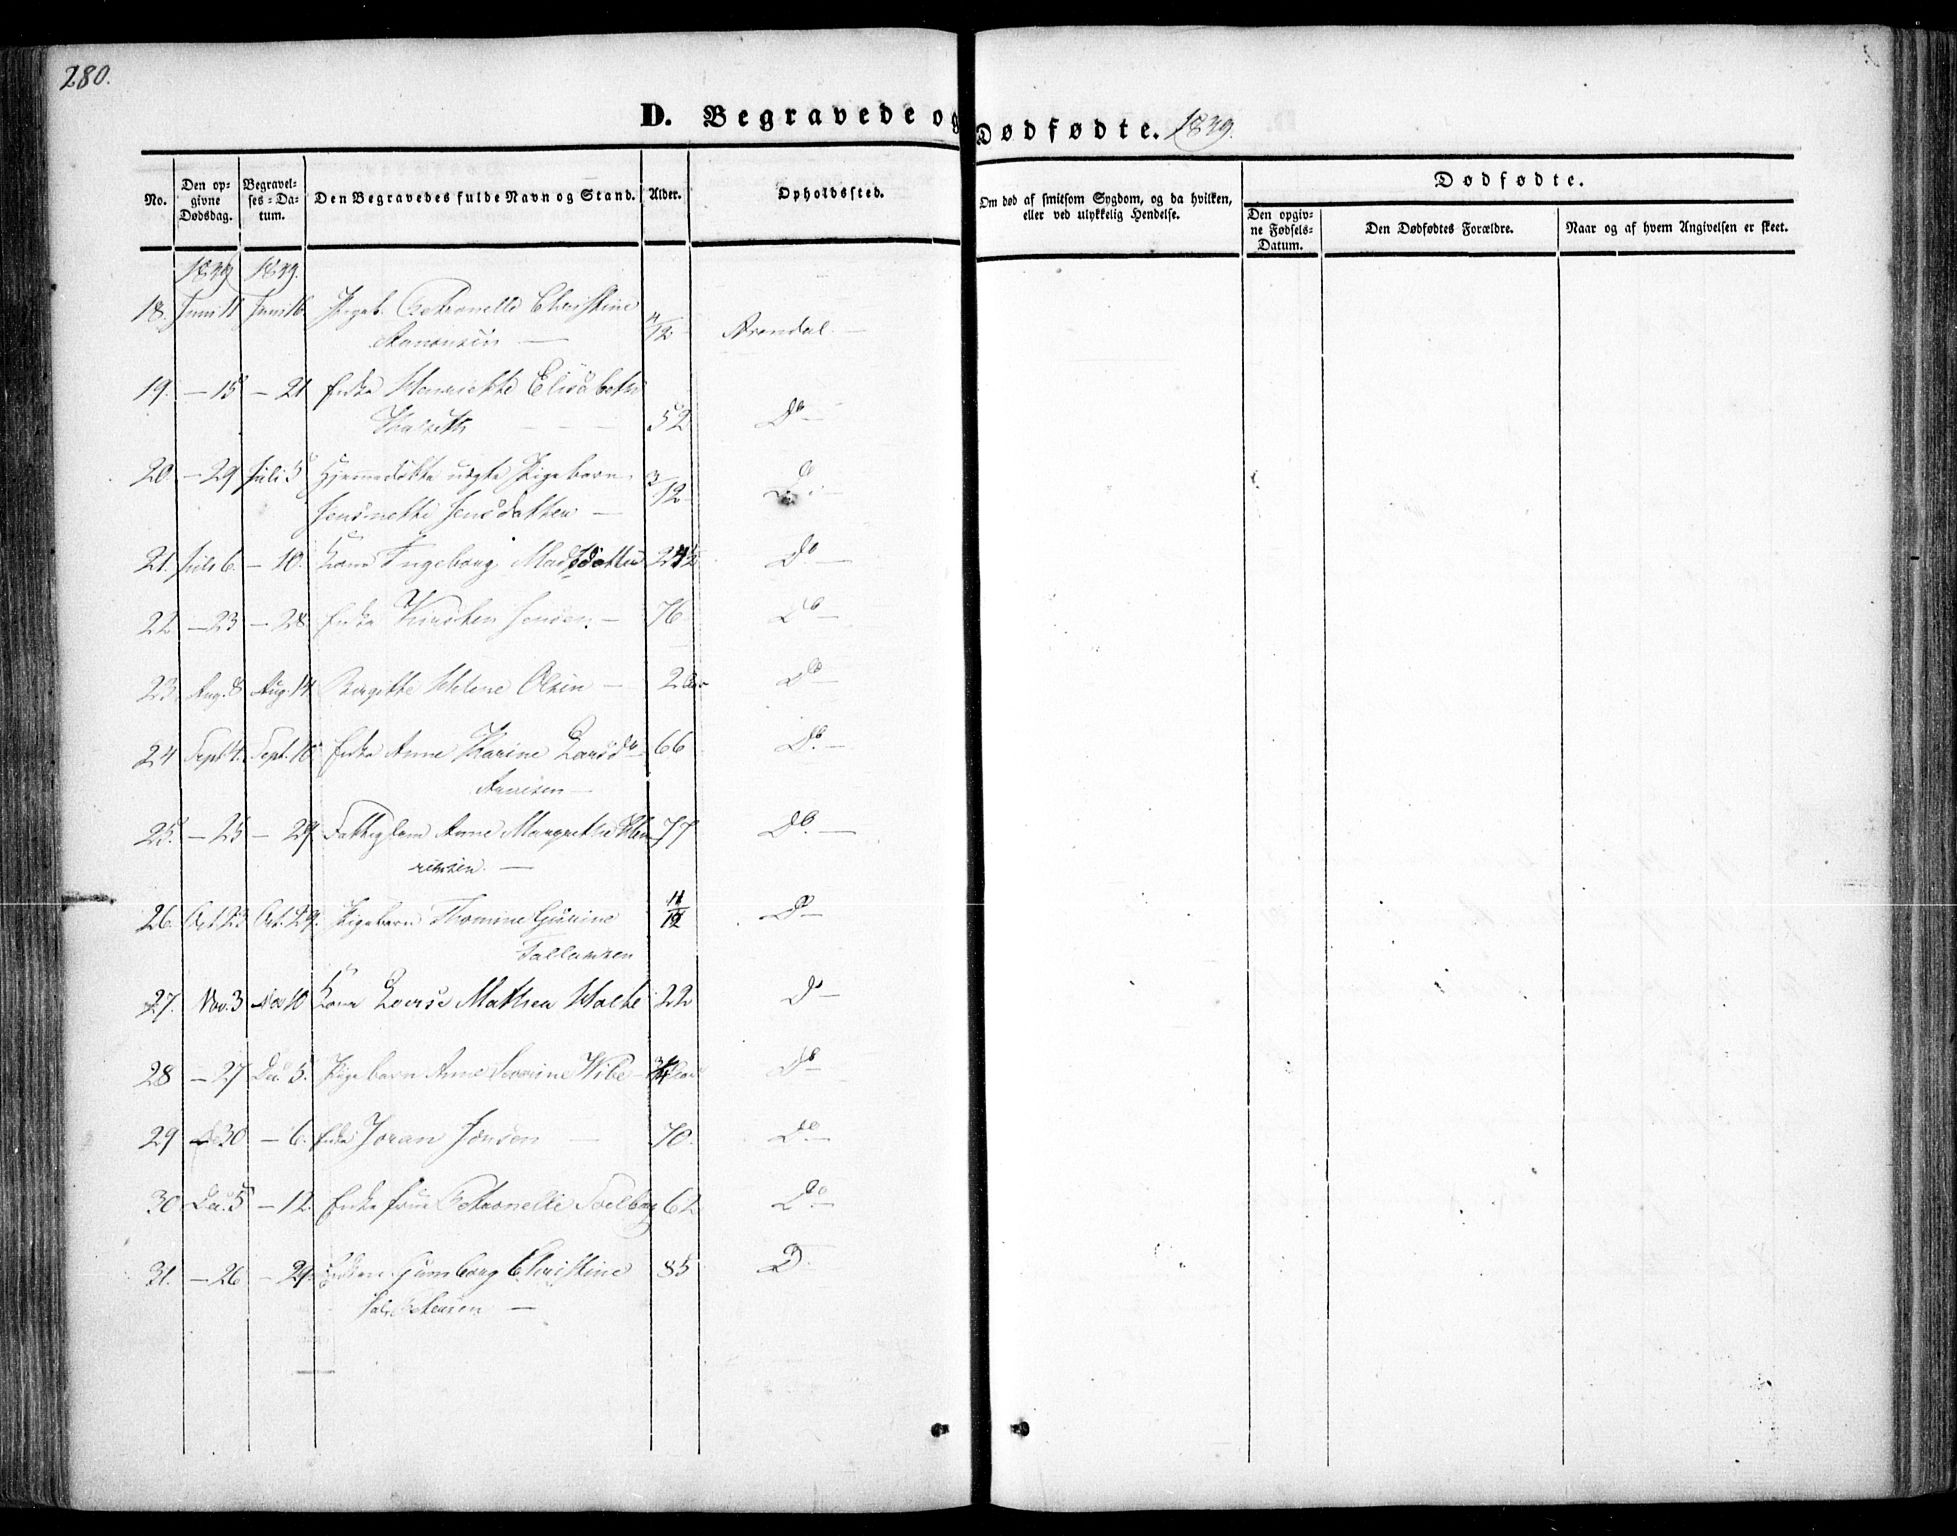 280.
D. Begravede og Dødfødte. 1849.
No.
Den opgivne Dødsdag.
Begravelses-Datum.
Den Begravedes fulde Navn og Stand.
Alder.
Opholdssted.
Om død af smitsom Sygdom, og da hvilken, eller ved ulykkelig Hendelse.
Dødfødte.
Den opgivne Fødsels-Datum.
Den Dødfødtes Forældre.
Naar og af hvem Angivelsen er skeet.
1849 1849.
18. Juni 11 Juni 16. Pigeb. Petronelle Christine
Aanonsen — /12 Arendal. —
19. — 15 — 21 Enke Henriette Elisabeth
52 Do —
20. — 29 Juli 5 Hjemmedøbte uægte Pigebarn 3/12 Do —
Jensinette Jensdatter —
21. Juli 6. — 10. Kone Ingeborg Madsdatter 24 Do —
22 — 23 — 28. Enke Kirsten Jensen — 76 Do —
23. Aug. 8 Aug. 14. Birgitte Helene Olsen — 2 Do —
24 Sept 4. Sept. 10 Enke Anne Karine Larsd. 66 Do. —
25. — 25 — 29. Fattiglem Anne Margrethe Hen 77 Do. —
riksen. —
26. Oct. 23 Oct. 29. Pigebarn Thomine Gurine 11/12 Do —
Tallaksen
27. Nov. 3 Nov 10 Kone Lovise Mathea Holte 22 Do —
28 — 27 Dec. 5. Pigebarn Anne Severine Wibe — 3/4 Do —
29 — 30 — 6. Enke Joran Jensen — 70. Do. —
30 Dec. 5 — 12. Enke frue Petronelle 62 Do. —
31. — 26 — 29. Enken Gumborg Christine 85 D.